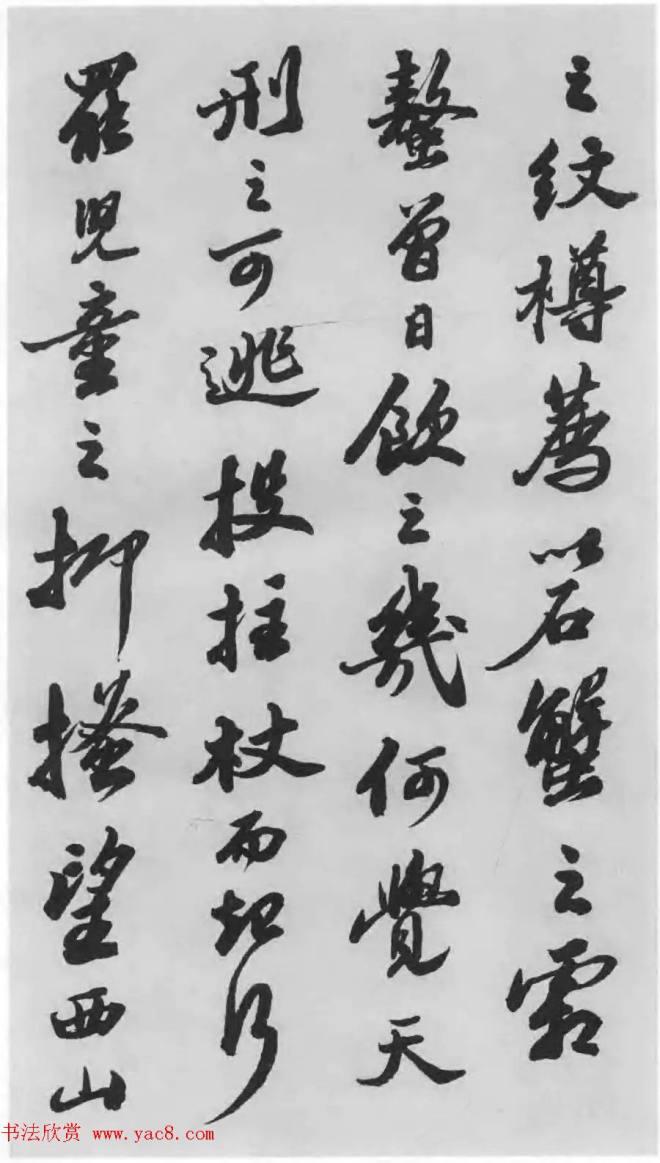 之紋樽薦以石蟹之霜
螯曾日飲之幾何覺天
刑之可逃投拄杖而起行
罷兒童之抑搔望西山
书法欣赏 www.yac8.com